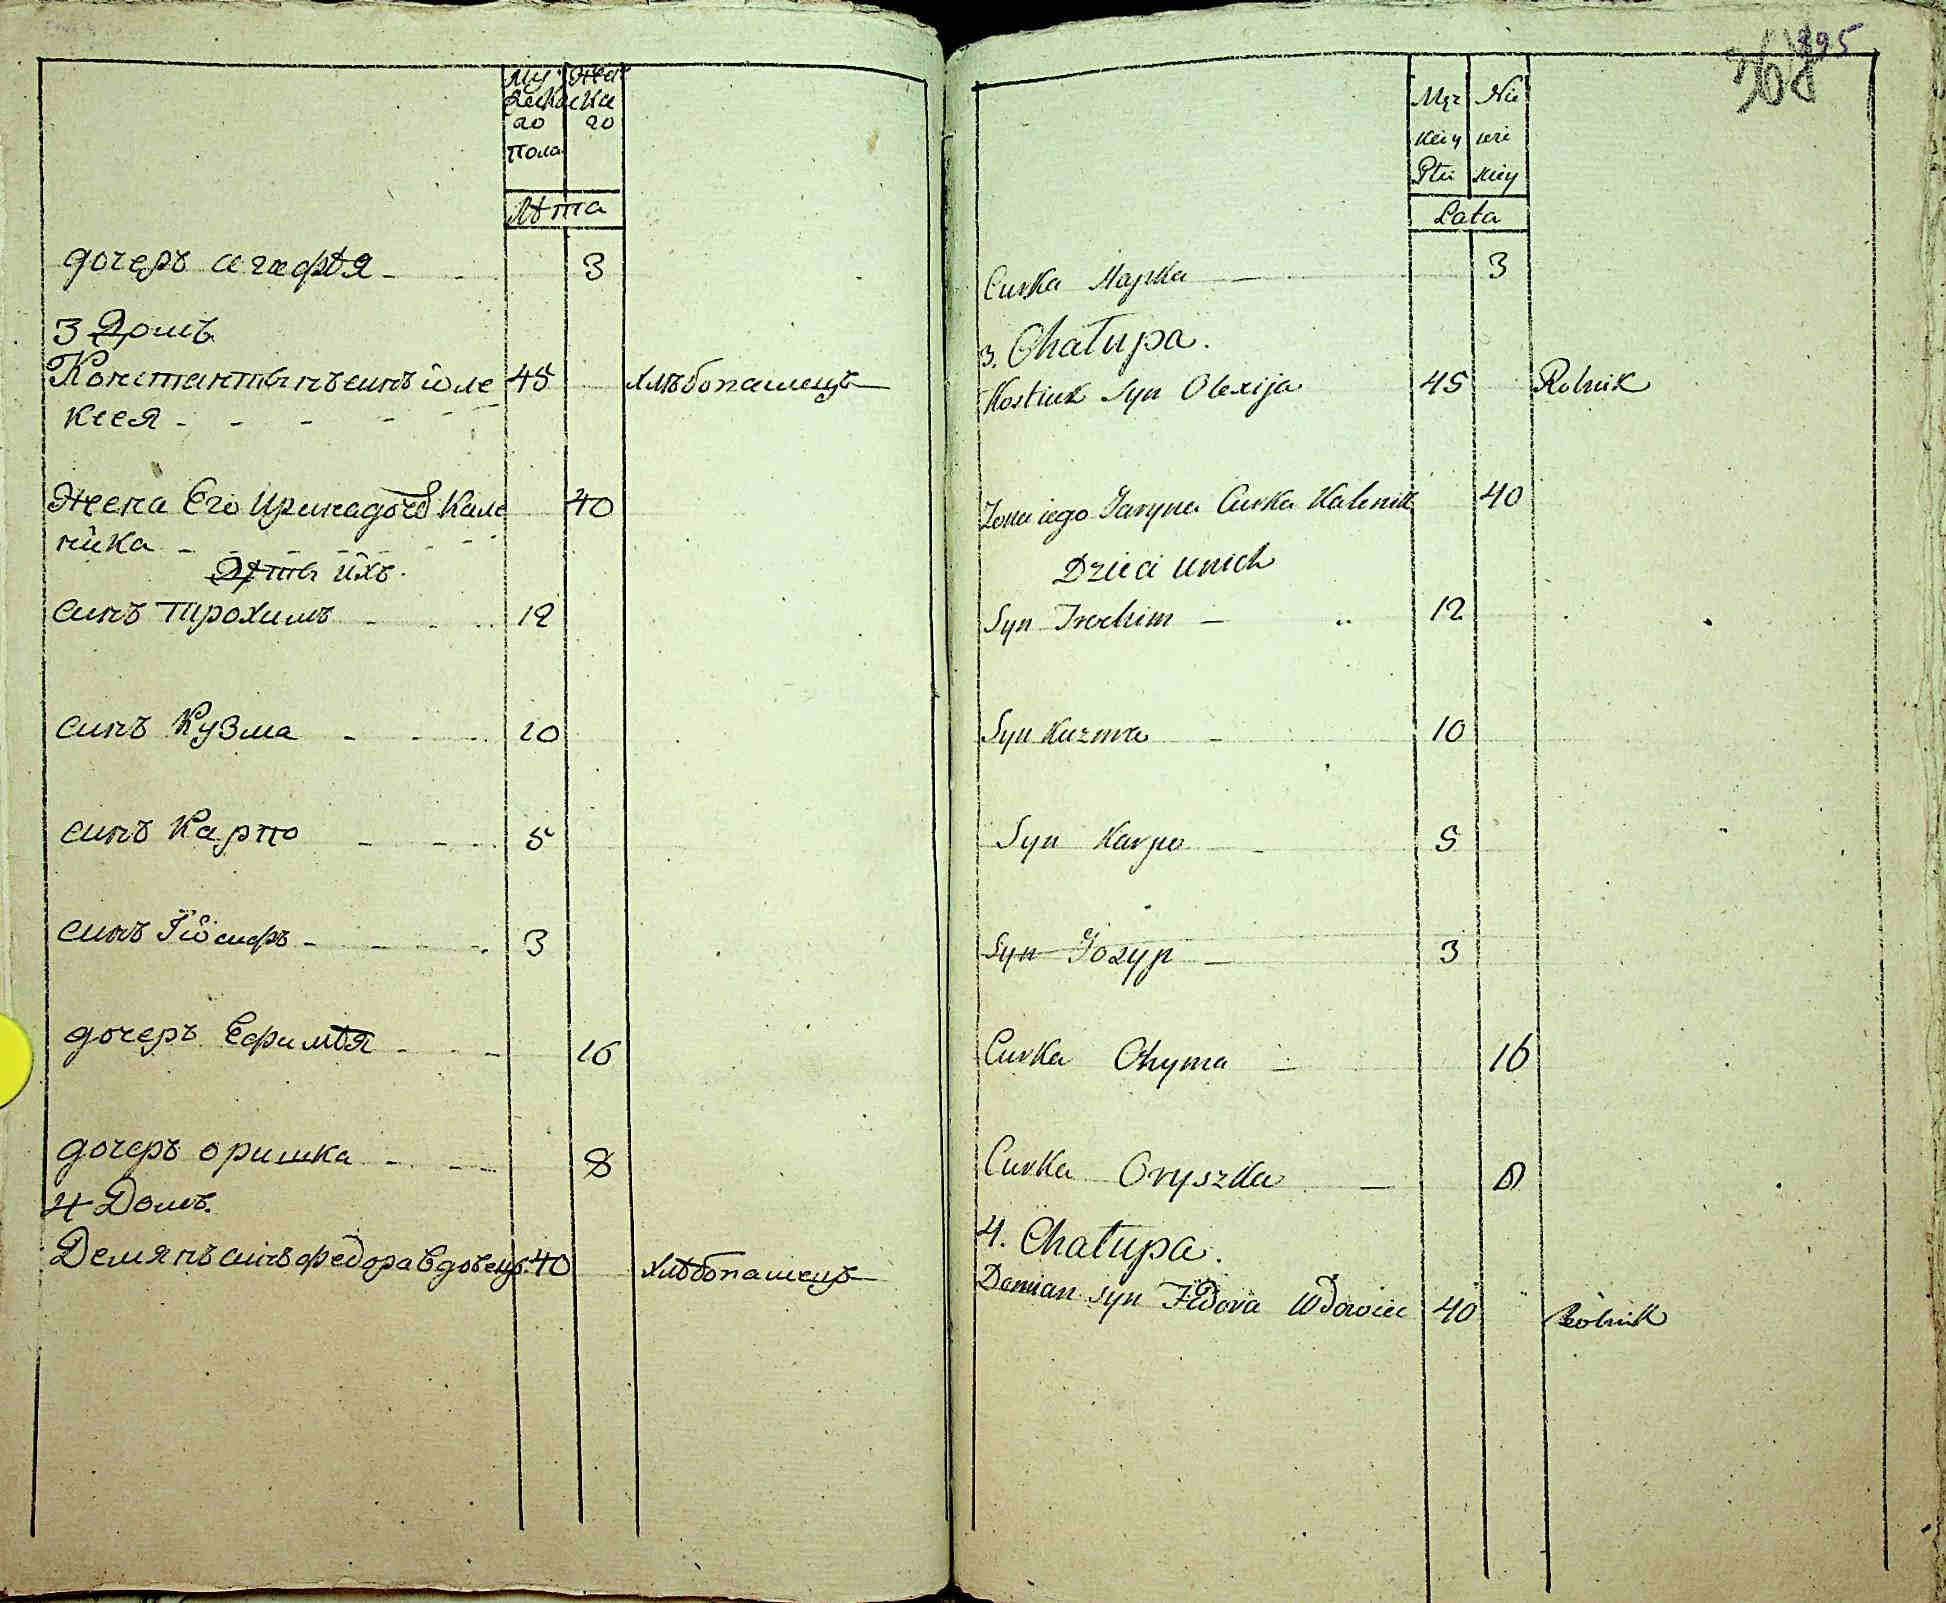 Му Же
жеска нска
го го
Пола
Лѣта
дочеръ агафѣя 3
3 Домъ
Константынъ синъ оле 45 хлѣбопашецъ
ксея
Жена Его Иринадочь Кале 40
ника
Дѣты ихъ.
синъ Трохимъ 12
синъ Кузма 10
синъ Карпо 5
синъ Іосифъ 3
дочеръ Ефимѣя 16
дочеръ оришка 8
4 Домъ.
Демянъ синъ федора вдовецъ 40 хлѣбопашецъ
895
Męz Nie
kiey wie
Płci skiey
Lata
Curka 3
3. Chałupa.
Kostiuk Syn Olexija 45 Rolnik
Zona iego Jaryna Curka Kalenik 40
Dzieci unich
Syn Trochim 12
Syn Kuzma 10
Syn Karpo 5
Syn Jozyp 3
Curka Chyma 16
Curka Oryszka 8
4. Chałupa.
Demian syn Fedora Wdowiec 40 Rolnik